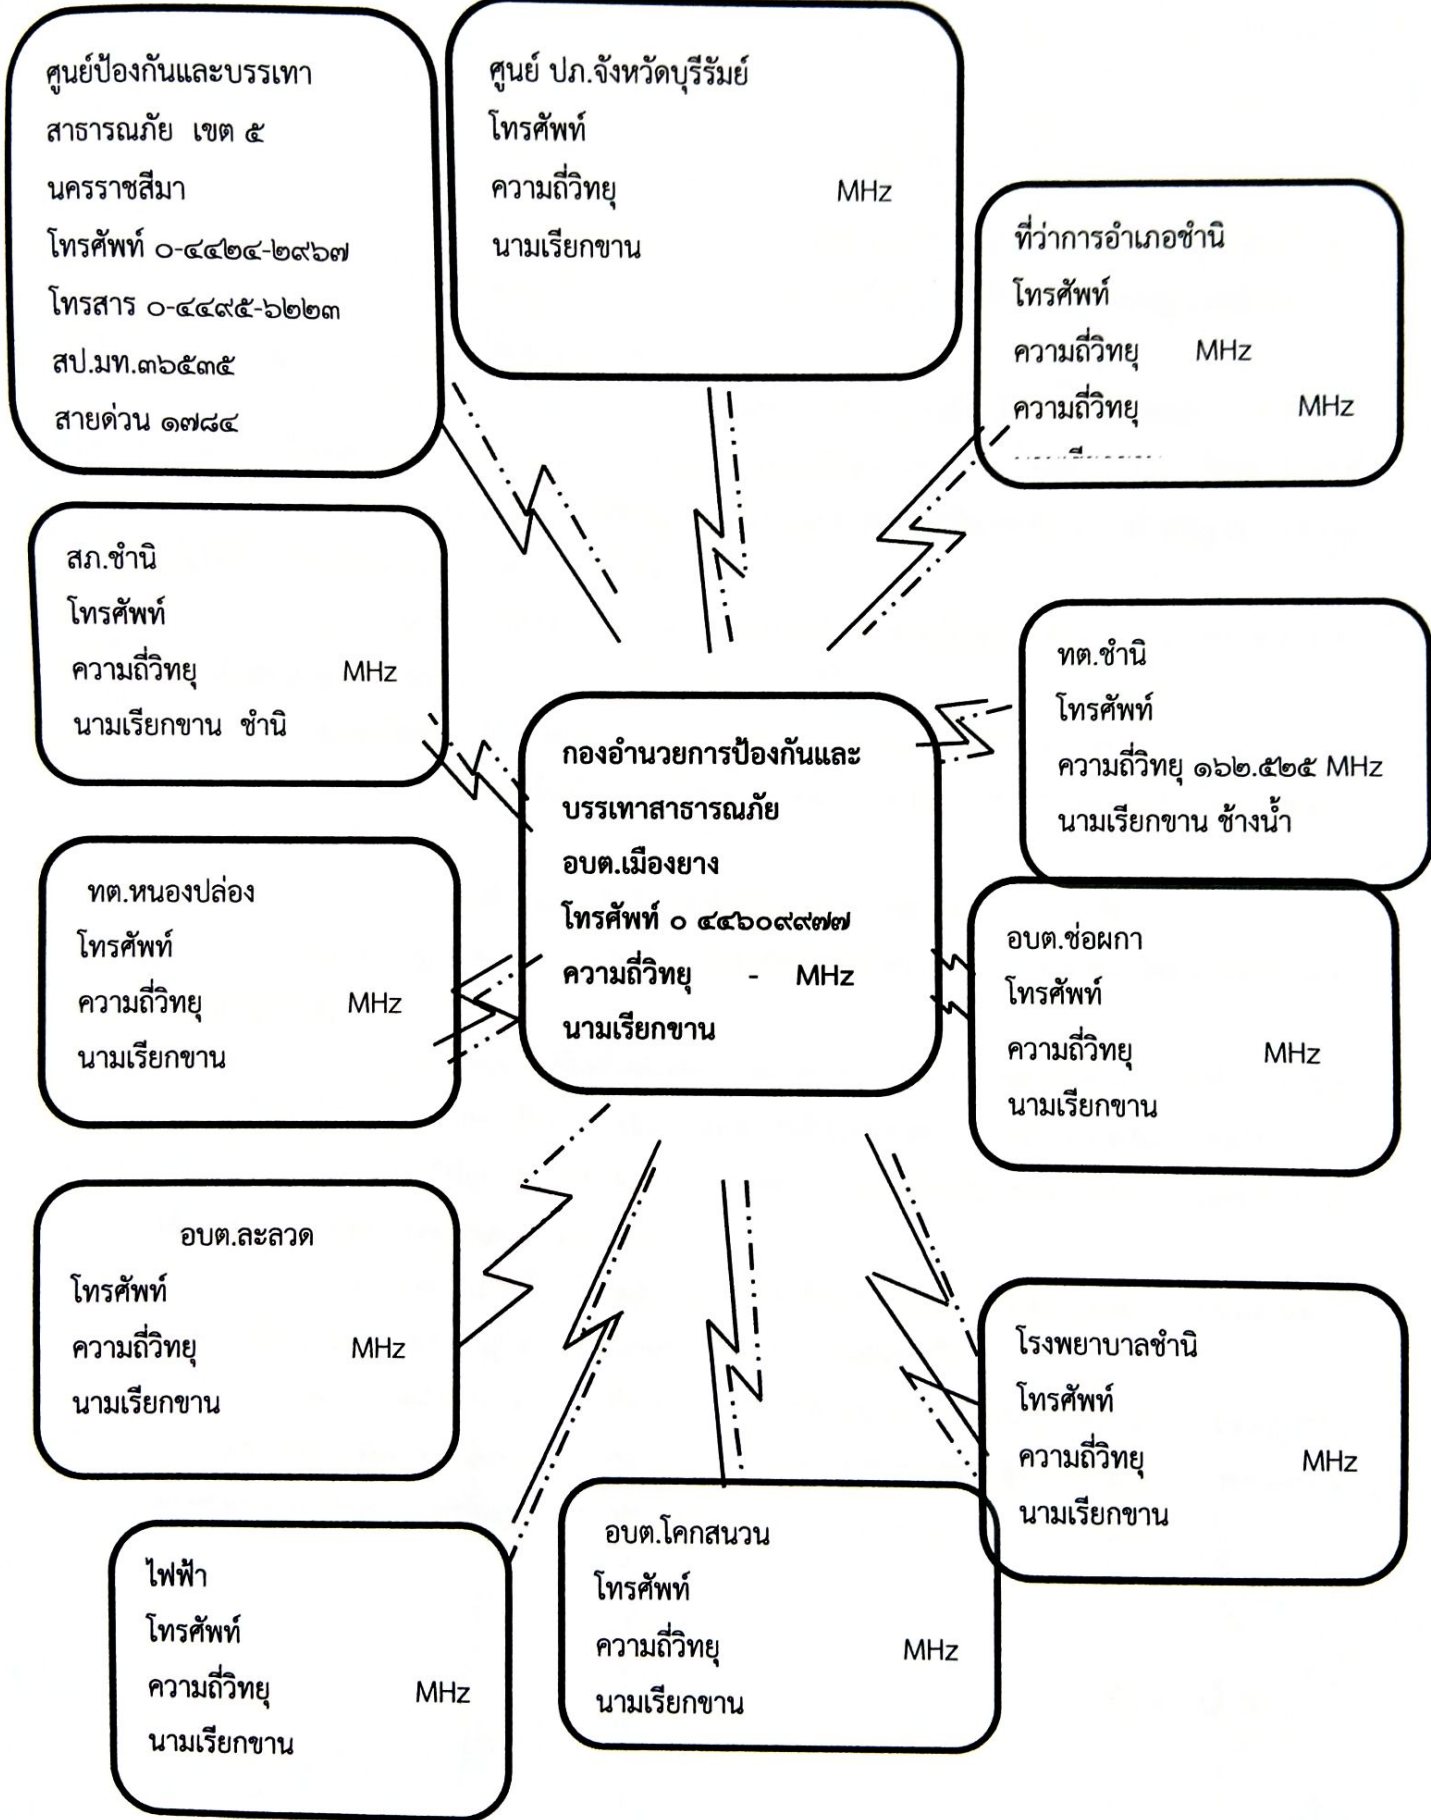 ศูนย์ป้องกันและบรรเทา
สาธารณภัย เขต ๕
นครราชสีมา
โทรศัพท์ ๐-๔๔๒๔-๒๙๖๗
โทรสาร ๐-๔๔๙๕-๖๒๒๓
สป.มท.๓๖๕๓๕
สายด่วน ๑๗๘๔
ศูนย์ ปภ.จังหวัดบุรีรัมย์
โทรศัพท์
ความถี่วิทยุ MHz
นามเรียกขาน
ที่ว่าการอำเภอชำนิ
โทรศัพท์
ความถี่วิทยุ MHz
ความถี่วิทยุ MHz
สภ.ชำนิ
โทรศัพท์
ความถี่วิทยุ MHz
นามเรียกขาน ชำนิ
ทต.ชำนิ
โทรศัพท์
ความถี่วิทยุ ๑๖๒.๕๒๕ MHz
นามเรียกขาน ช้างน้ำ
กองอำนวยการป้องกันและ
บรรเทาสาธารณภัย
อบต.เมืองยาง
โทรศัพท์ ๐ ๔๔๖๐๙๙๗๗
ความถี่วิทยุ - MHz
นามเรียกขาน
ทต.หนองปล่อง
โทรศัพท์
ความถี่วิทยุ MHz
นามเรียกขาน
อบต.ช่อผกา
โทรศัพท์
ความถี่วิทยุ MHz
นามเรียกขาน
อบต.ละลวด
โทรศัพท์
ความถี่วิทยุ MHz
นามเรียกขาน
โรงพยาบาลชำนิ
โทรศัพท์
ความถี่วิทยุ MHz
นามเรียกขาน
อบต.โคกสนวน
โทรศัพท์
ความถี่วิทยุ MHz
นามเรียกขาน
ไฟฟ้า
โทรศัพท์
ความถี่วิทยุ MHz
นามเรียกขาน